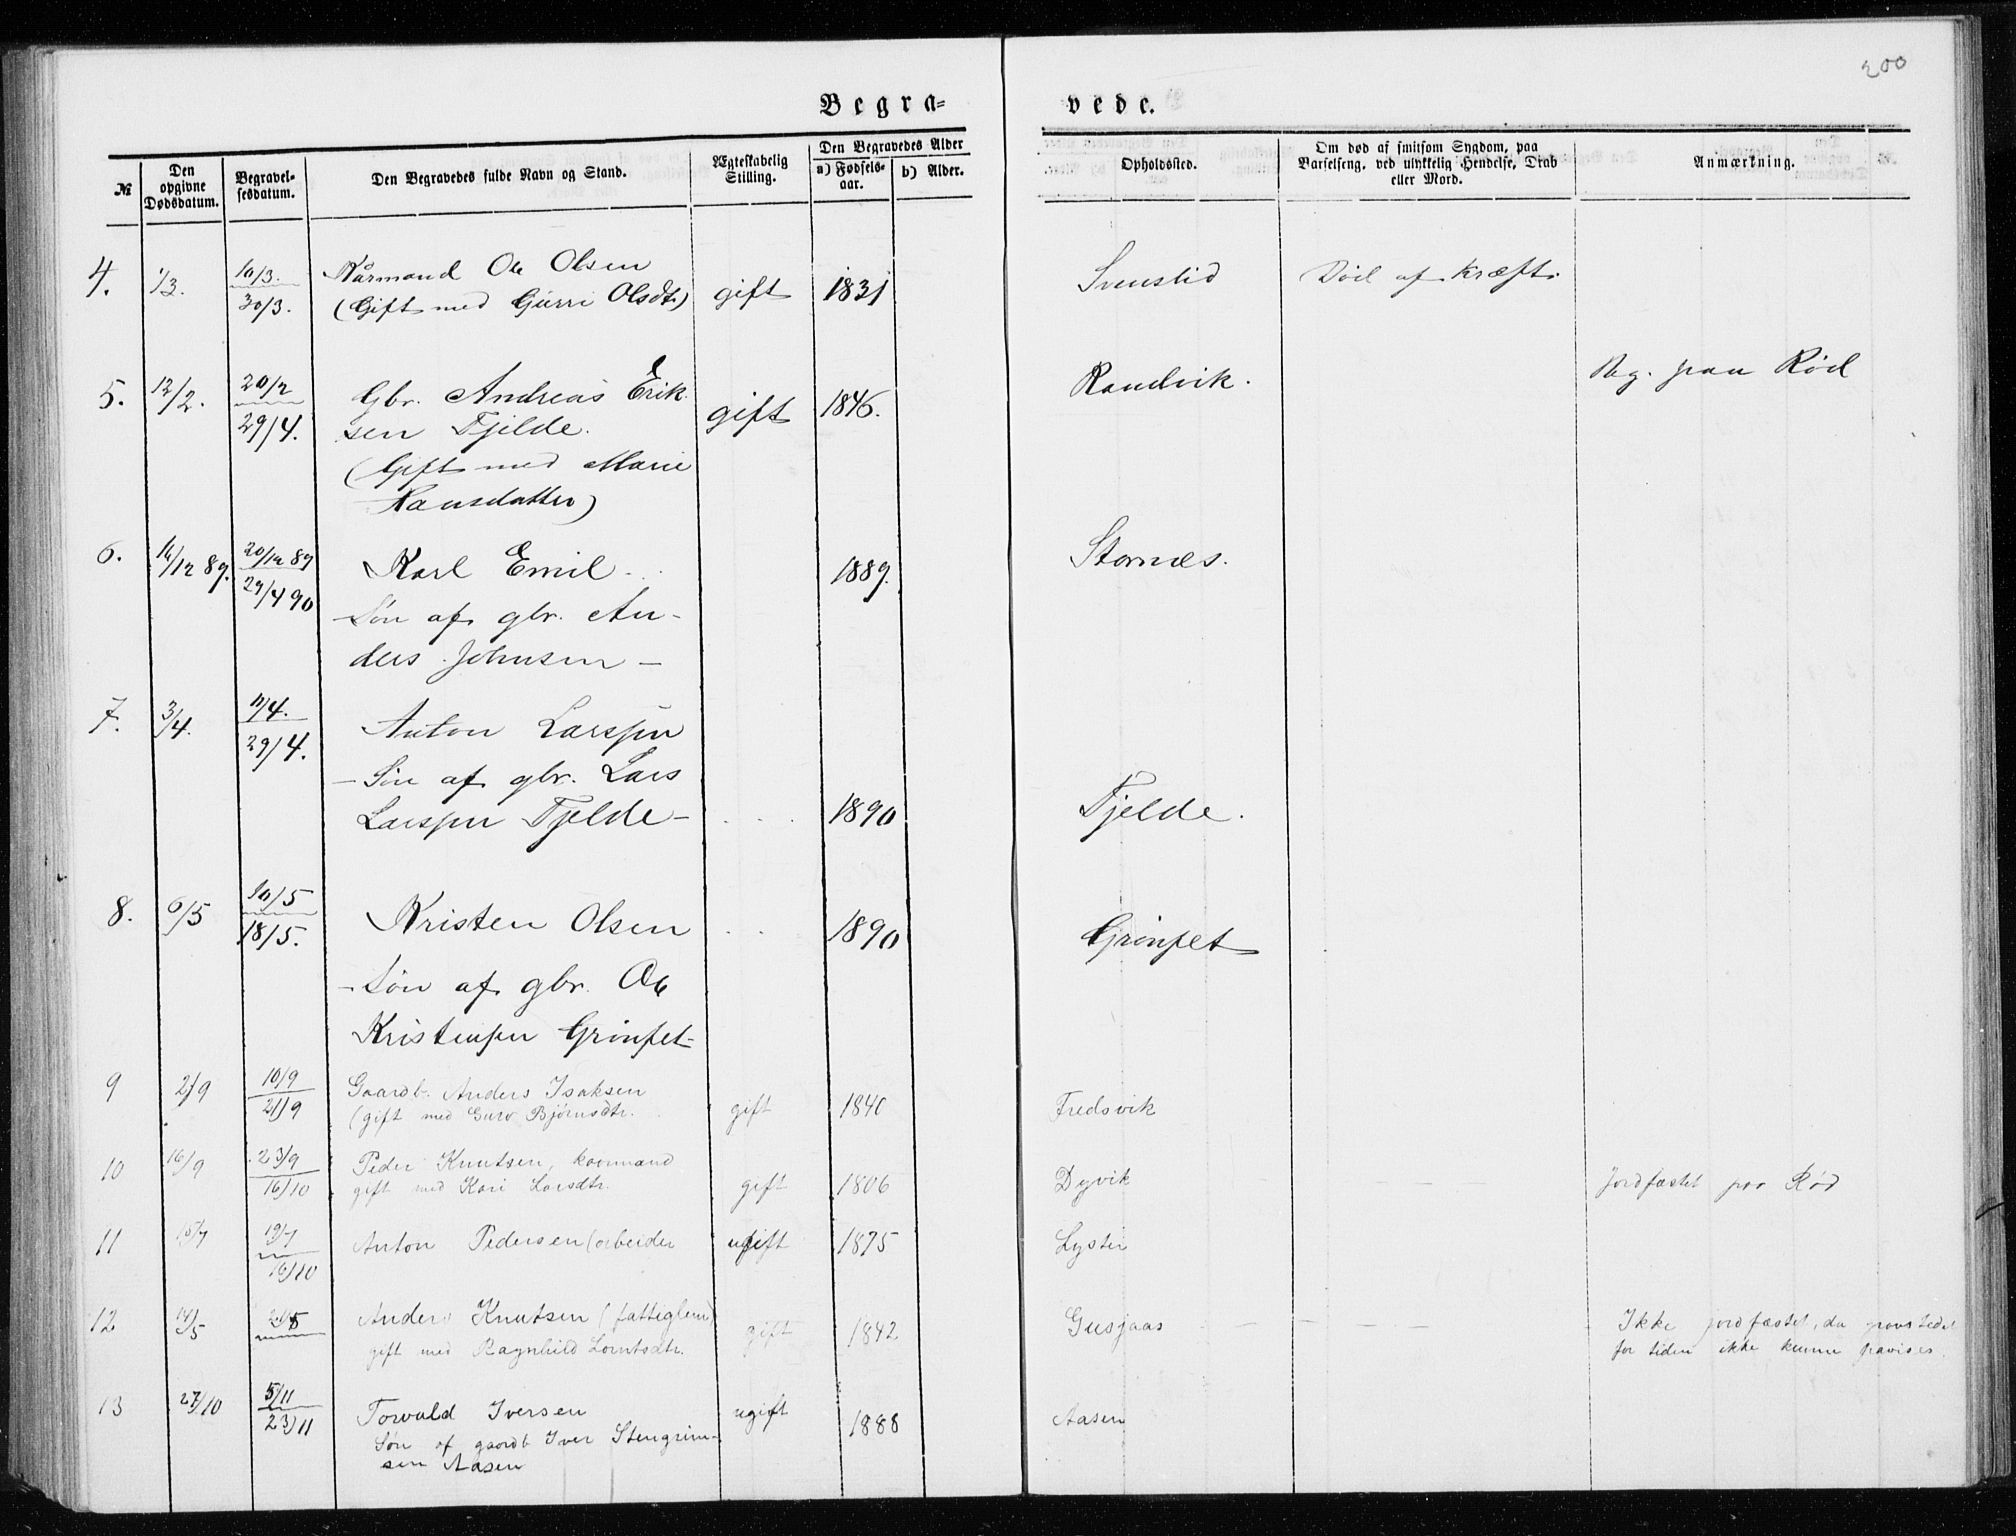 200
Begra=
vede.
№
Den opgivne Dødsdatum.
Begravelsesdatum.
Den Begravedes fulde Navn og Stand.
Ægteskabelig Stilling.
Den Begravedes Alder
a) Fødselsaar.
b) Alder.
Opholdssted.
Om død af smitsom Sygdom, paa Barselseng, ved ulykkelig Hendelse, Drab eller Mord.
Anmærkning.
4. 1/3. 10/3. Kårmand Ole Olsen Svenslid Död af kræft.
30/3. (Gift med Gjurri Olsdt.) gift 1831
5. 12/2. 20/2 Gbr. Andreas Erik Randvik. Beg. paa Rød
29/4. sen Fjelde. gift 1846.
(Gift med Marie
Hansdatter)
6. 14/12 89. 20/12 89 Karl Emil. 1889. Stornæs.
29/4 90 - Sön af gbr. An-
ders Johnsen -
7. 3/4. 11/4. Anton Larssen
29/4. - Sön af gbr. Lars
Larssen Fjelde - 1890 Fjelde.
8. 6/5 10/5 Kristen Olsen 1890 Grönset
18/5. - Sön af gbr. Ole
Kristensen Grönset -
9 2/9 10/9 Gaardb. Anders Isaksen
21/9 (gift med Guro Bjørnsdtr. gift 1840 Fredsvik
10 16/9 23/9 Peder Knutsen, kaarmand
16/10 gift med Kari Larsdtr. gift 1806 Dyvik Jordfæstet paa Rød
11 15/7 19/7 Anton Pedersen (arbeider ugift 1875 Lyster
16/10
12 14/5 21/5 Anders Knutsen (fattiglem) gift 1842 Gusjaas Ikke jordfæstet, da gravstedet
gift med Ragnhild Lorntsdtr. for tiden ikke kunne paavises.
13 27/10 5/11 Torvald Iversen ugift 1888 Aasen
23/11 Søn af gaardb Iver Stengrim-
sen Aasen